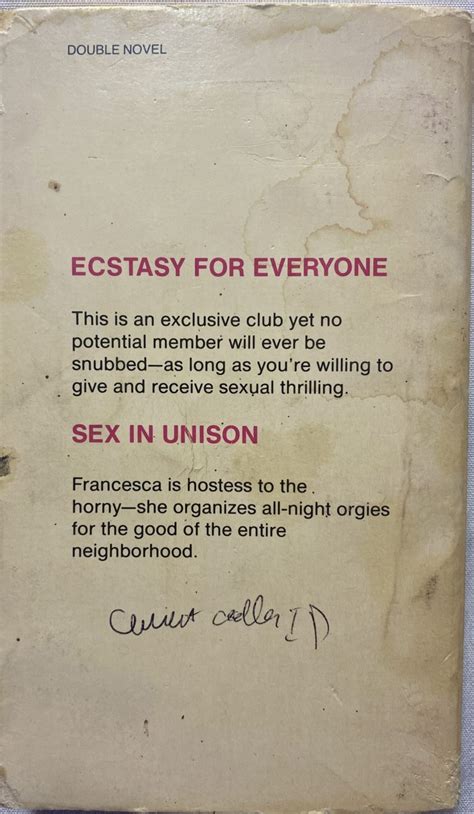 DOUBLE NOVEL
ECSTASY FOR EVERYONE
This is an exclusive club yet no
potential member will ever be
snubbed—as long as you're willing to
give and receive sexual thrilling.
SEX IN UNISON
Francesca is hostess to the
horny—she organizes all-night orgies
for the good of the entire
neighborhood.